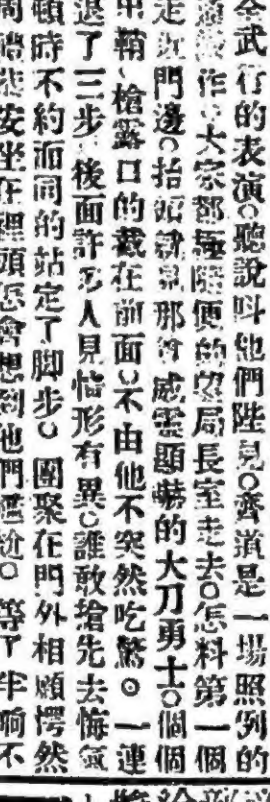 全武行的表演。聽說叫他們陛見。齊道是一場照例的
作。大家都極隨便的望局長室走去。怎料第一個
走近門邊。抬頭就見那一威靈顯赫的大刀勇士。個個
出鞘、槍露口的戴在前面。不由他不突然吃驚。一連
退了三步。後面許多人見情形有異。誰敢搶先去悔氣
頓時不約而同的站定了脚步。團聚在門外相顧愕然
安坐在裡頭怎會想到他們尷尬。等了半晌不